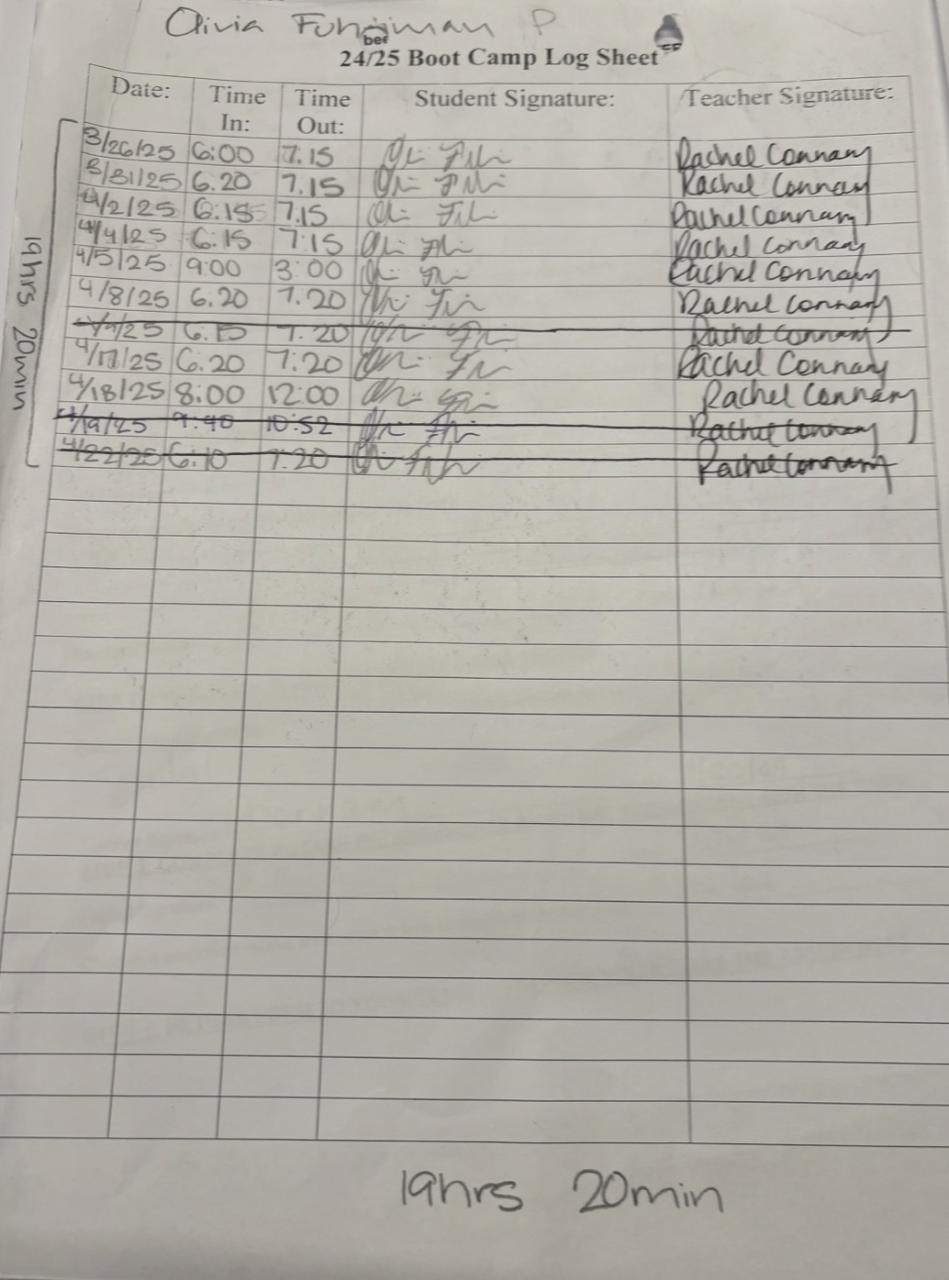 Olivia Fuhrman P
ber
24/25 Boot Camp Log Sheet
Date: Time In: Time Out: Student Signature: Teacher Signature:
3/26/25 6:00 7.15 Rachel Connany
3/31/25 6.20 7.15 Rachel Connany
4/2/25 6:15 7.15 Rachel Connany
4/4/25 6:15 7:15 Rachel Connany
4/5/25 9:00 3:00 Rachel Connany
4/8/25 6.20 7.20 Rachel Connany
4/9/25 6.15 7.20 Rachel Connany
4/17/25 6.20 7:20 Rachel Connany
4/18/25 8:00 12:00 Rachel Connany
4/19/25 9:40 10:52 Rachel Connany
4/22/25 6:10 7.20 Rachel Connany
19hrs 20min
19hrs 20min